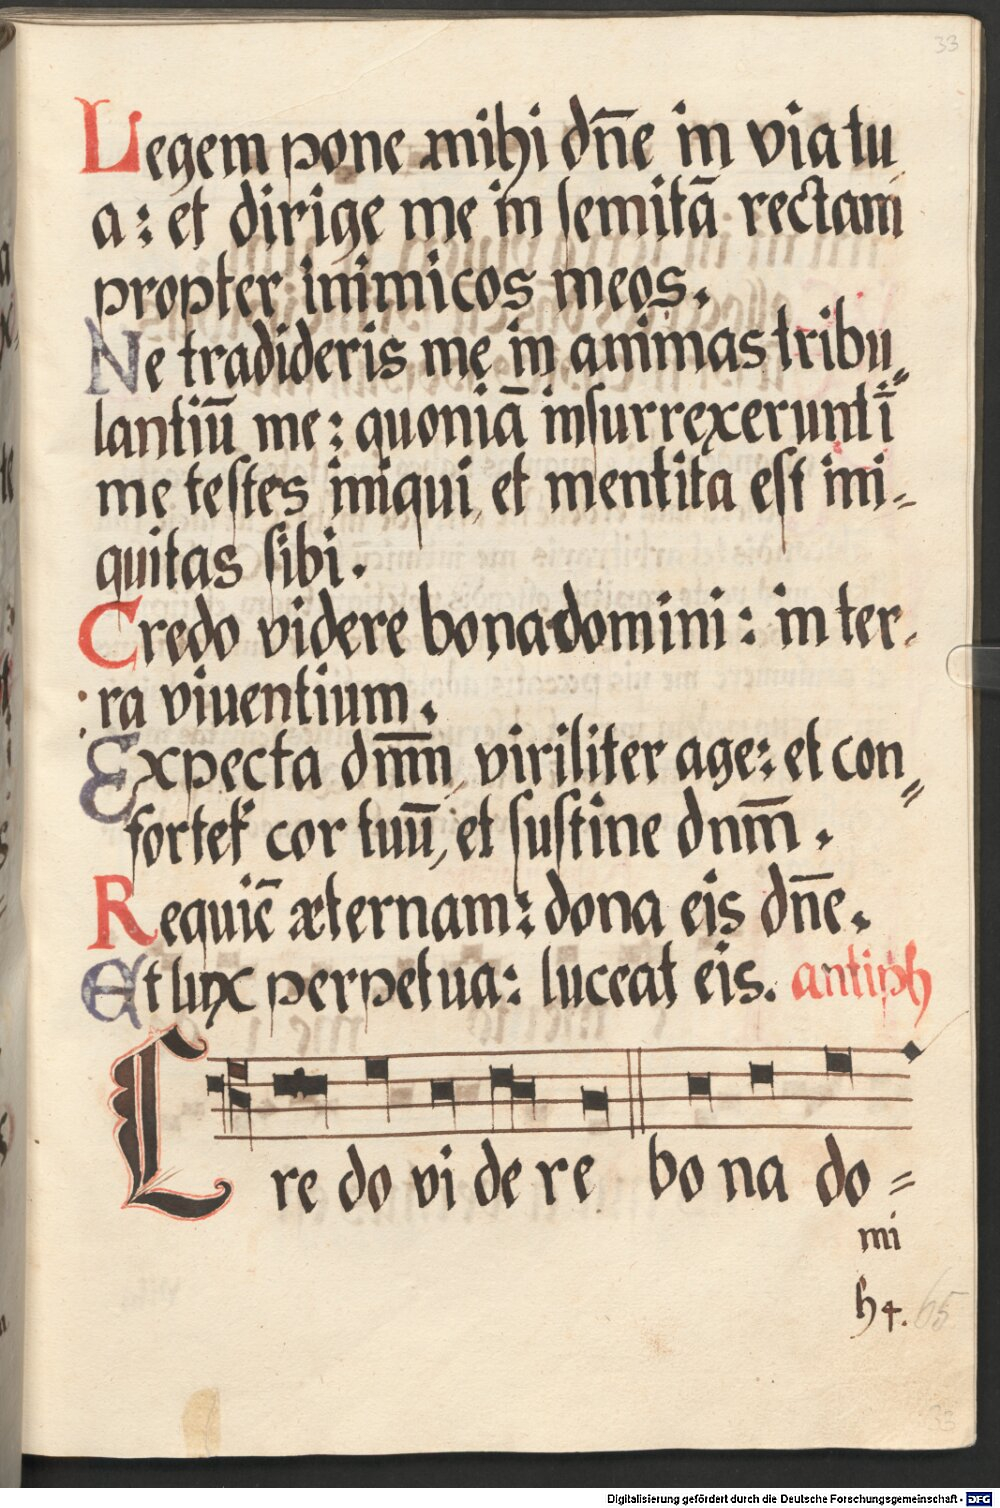 33
Legem pone mihi dñe in via tu
a: et dirige me in semitā rectam
propter inimicos meos.
Ne tradideris me in animas tribu„
lantiū me: quoniā insurrexerunt ī
me testes iniqui, et mentita est ini-
quitas sibi.
Credo videre bona domini: in ter-
ra viuentium.
Expecta dn̄m, viriliter age: et con„
fortet' cor tuū, et sustine dnm̄.
Requiē æternam: dona eis dñe.
Et lux perpetua: luceat eis. antiph
Credo videre bona do=
mi
h4. 65
33
Digitalisierung gefördert durch die Deutsche Forschungsgemeinschaft - DFG